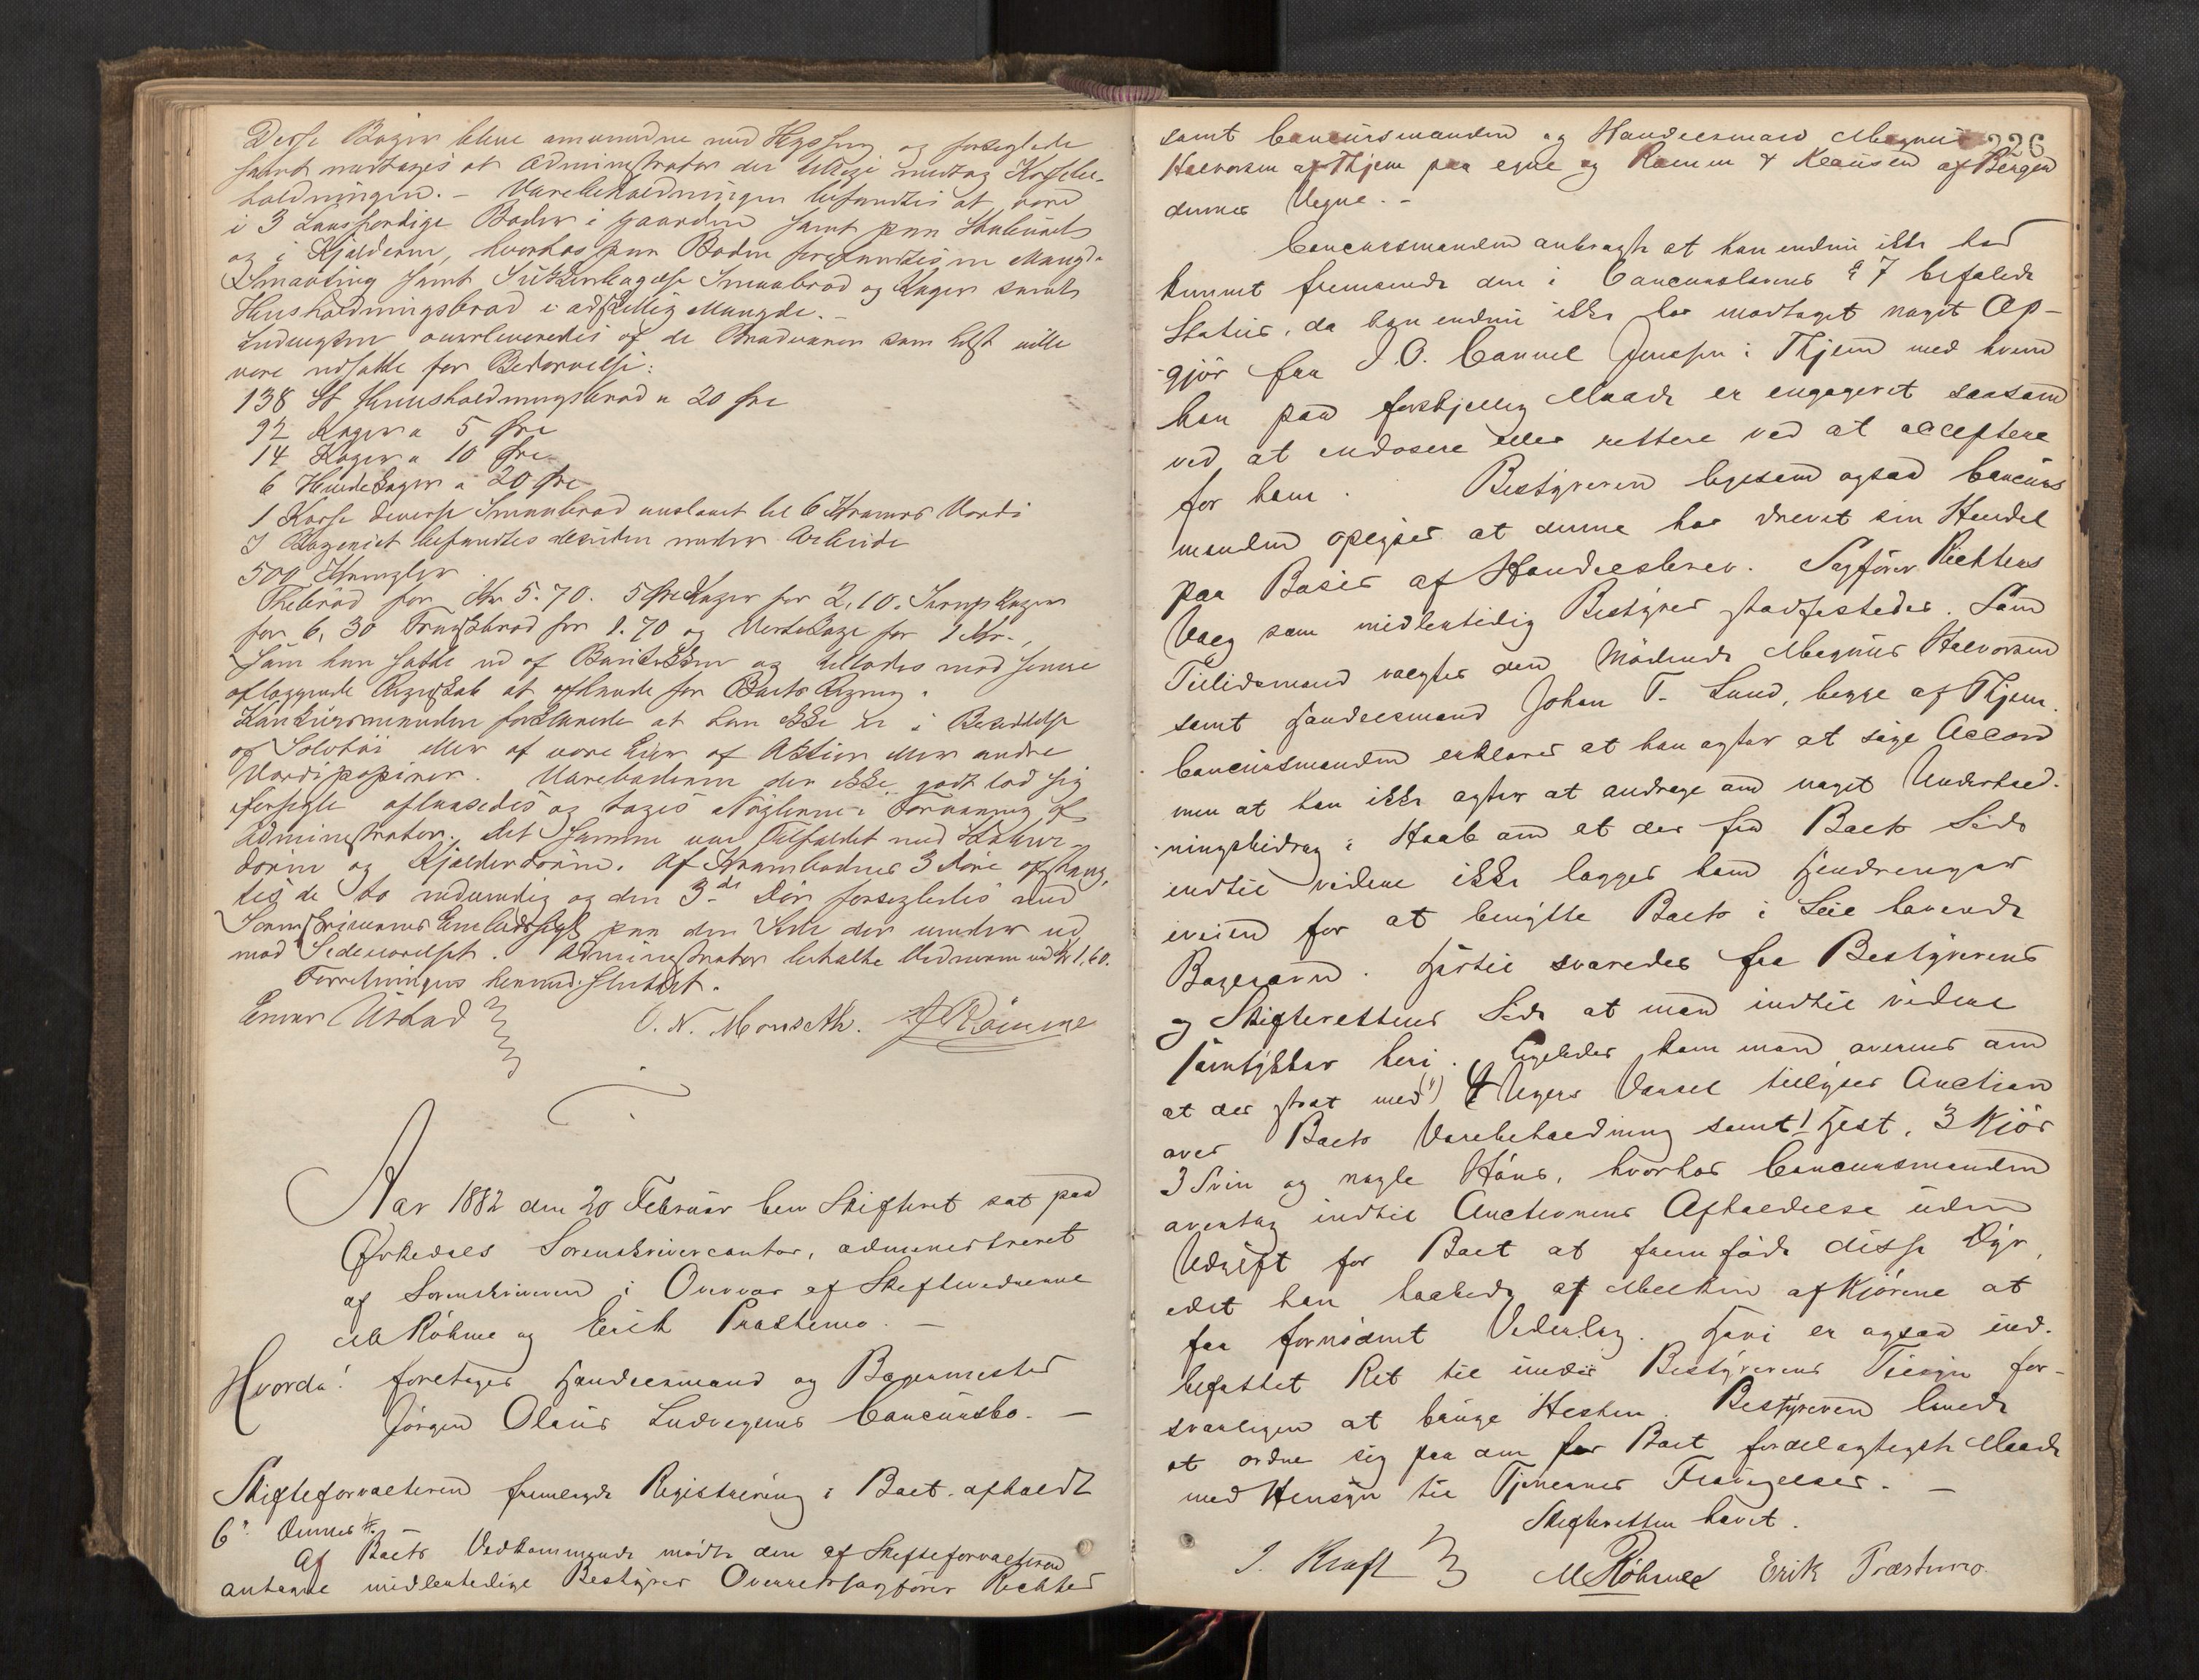 Disse Bøger bleve omvundne med Hyssing og forseglede
samt modtoges af Administrator der tillige modtog Kassebe-
holdningen. – Varebeholdningen befandtes at være
i 3 Boder i Gaarden samt paa Staburet
og i Kjælderen, hvorhos paa Boden forefandtes en Mængde
Smaating samt Smaabrød og Kager samt
Husholdningsbrød i adskillig Mængde. –
Ludvigsen overleveredes af de Brødvarer som helst ville
være udsatte for Bedærvelse:
138 St Huusholdningsbrød a 20 Øre
92 Kager a 5 Øre
14 Kager a 10 Øre
6 Kager a 20 Øre
1 Kasse diverse Smaabrød anslaaet til 6 Kroners Værdi
I Bageriet befandtes desuden under Arbeide
500 Kringler
Thebrød for Kr 5.70. 5 Øre Kager for 2,10. Sirups Kager
for 6,30 Franskbrød for 1.70 og Kage for 1 Kr.,
Som han satte ud af Butikken og tillodes mod senere
aflæggende Regnskab at afhænde for Boets Regning.
Konkursmanden forklarede at han ikke er i Besiddelse
af Sølvtøi eller af være Eier af Aktier eller andre
Værdipapirer. Vareboderne der ikke godt lod sig
forsegle aflaasedes og toges Nøglerne i Forvaring af
Administrator. Det Samme var Tilfældet med
døren og Kjælderdøren. Af Krambodens 3 Døre afstæng-
tes de to indvendig og den 3die Dør forsegledes med
Sorenskriverens Embedssegl paa den Side der vender ud
mod . Administrator betalte Vidnerne ud Kr 1,60.
Forretningen hermed sluttet.
Einar Ustad O. N. Monseth. Römme
Aar 1882 den 20 Februar blev Skifteret sat paa
Ørkedals Sorenskrivercontor, administreret
af Sorenskriveren i Overvær af Skiftevidnerne
M Röhme og Erik Præstmo. –
Hvorda! foretoges Handelsmand og Bagermester
Jörgen Olaus Ludvigsens Concursbo. –
Skifteforvalteren fremlagde Registrering i Boet afholdt
6te dennes.
Af Boets Vedkommende mødte den af Skifteforvalteren
antagne midlertidige Bestyrer Overretssagfører Richter
226
samt Concursmanden og Handelsmand Magnus
Halvorsen af Thjem paa egne og & Klausen af Bergen
dennes Vegne. –
Concursmanden anbragte at han endnu ikke har
kunnet fremsende den i Concurslovens § 7 befalede
Status, da han endnu ikke har modtaget noget Op-
gjör fra J. O. Jensen i Thjem med hvem
han paa forskjellig Maade er engageret saasom
ved at endosere eller rettere ved at acceptere
for ham. Bestyreren ligesom ogsaa Concurs
manden opgiver at denne har drevet sin Handel
paa Basis af Handelsbrev. Sagförer Richters
Valg som midlertidig Bestyrer stadfæstedes. Som
Tillidsmænd valgtes den mødende Magnus Halvorsen
samt Handelsmand Johan T. Lund, begge af Thjem.
Concursmanden erklærer at han agter at söge Accord
men at han ikke agter at andrage om noget Underhold-
ningsbidrag i Haab om at der fra Boets Side
indtil videre ikke lægges ham Hindringer
iveien for at benytte Boets i Leie havende
Bageriovn. Hertil svaredes fra Bestyrerens
og Skifterettens Side at man indtil videre
samtykker heri. Ligeledes kom man overens om
at der strax med 4 Ugers Varsel tillyses Auction
over Boets Varebeholdning samt 1 Hest, 3 Kjör
3 Svin og nogle Höns, hvorhos Concursmanden
overtog indtil Auctionens Afholdelse uden
Udgift for Boet at fremföde disse Dyr,
idet han haabede af Melken af Kjörene at
faa fornödent Vederlag. Heri er ogsaa ind-
befattet Ret til under Bestyrerens Tilsyn for-
svarligen at bruge Hesten. Bestyreren lovede
at ordne sig paa den for Boet fordelagtigste Maade
med Hensyn til Tjenernes . –
Skifteretten hævet.
J. Kraft M Röhme Erik Præstmo.